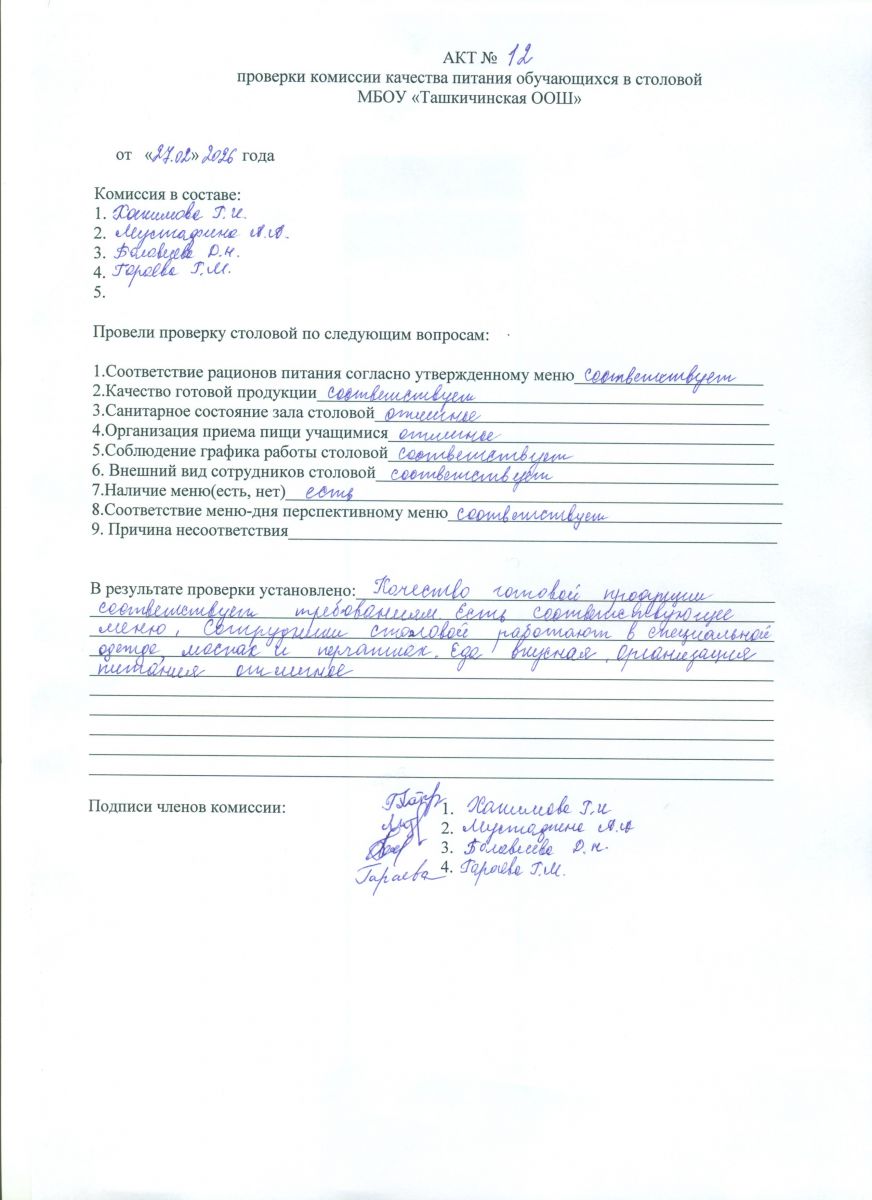 АКТ № 12
проверки комиссии качества питания обучающихся в столовой
МБОУ «Ташкичинская ООШ»
от «27.02» 2026 года
Комиссия в составе:
1. Хакимова Г.И.
2. Мустафина А.А.
3. Балавиева Д.Н.
4. Гараева Г.М.
5.
Провели проверку столовой по следующим вопросам:
1.Соответствие рационов питания согласно утвержденному меню соответствует
2.Качество готовой продукции соответствует
3.Санитарное состояние зала столовой отличное
4.Организация приема пищи учащимися отличное
5.Соблюдение графика работы столовой соответствует
6. Внешний вид сотрудников столовой соответствует
7.Наличие меню(есть, нет) есть
8.Соответствие меню-дня перспективному меню соответствует
9. Причина несоответствия
В результате проверки установлено: Качество готовой продукции
соответствует требованиям. Есть соответствующее
меню. Сотрудники столовой работают в специальной
одежде, масках и перчатках. Еда вкусная, организация
питания отличное
Подписи членов комиссии:
1. Хакимова Г.И
2. Мустафина А.А
3. Балавиева Д.Н.
Гараева 4. Гараева Г.М.